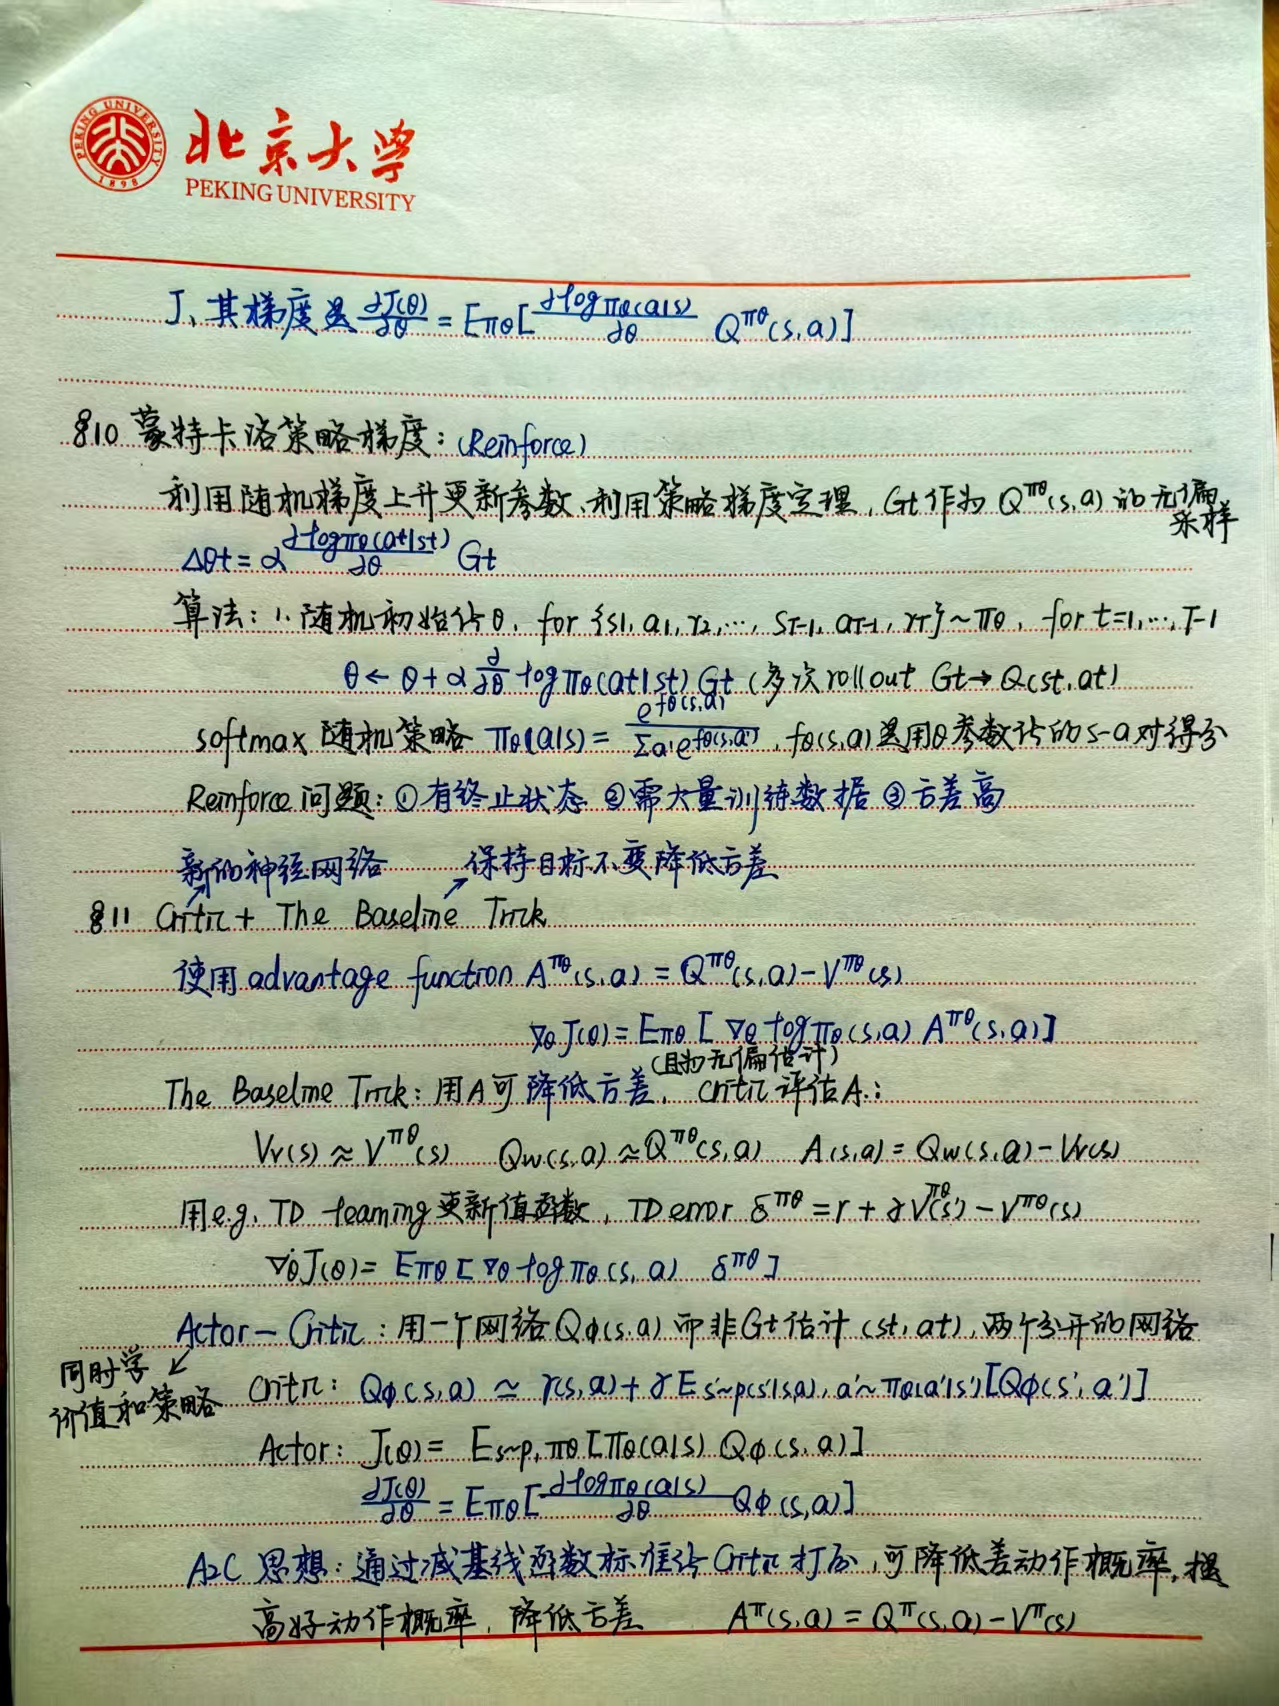 PEKING UNIVERSITY
1898
北京大学
PEKING UNIVERSITY
J, 其梯度是 ∂J(θ)/∂θ = Eπθ[∂logπθ(a|s)/∂θ Q^πθ(s,a)]
§10 蒙特卡洛策略梯度:(Reinforce)
利用随机梯度上升更新参数、利用策略梯度定理, Gt作为 Q^πθ(s,a) 的无偏
采样
Δθt = α ∂logπθ(at|st)/∂θ Gt
算法: 1. 随机初始化θ, for {s1, a1, r2, …, sT-1, aT-1, rT} ~ πθ, for t=1, …, T-1
θ ← θ + α ∂/∂θ logπθ(at|st) Gt (多次rollout Gt → Q(st, at)
softmax 随机策略 πθ(a|s) = e^fθ(s,a) / Σa' e^fθ(s,a'), fθ(s,a)是用θ参数化的s-a对得分
Reinforce问题: ①有终止状态 ②需大量训练数据 ③方差高
新的神经网络 保持目标不变降低方差
§11 Critic + The Baseline Trick
使用 advantage function A^πθ(s,a) = Q^πθ(s,a) - V^πθ(s)
∇θJ(θ) = Eπθ[∇θ logπθ(s,a) A^πθ(s,a)]
(且为无偏估计)
The Baseline Trick: 用A可降低方差, critic评估A:
Vv(s) ≈ V^πθ(s) Qw(s,a) ≈ Q^πθ(s,a) A(s,a) = Qw(s,a) - Vv(s)
用e.g. TD learning更新值函数, TD error δ^πθ = r + γV^πθ(s') - V^πθ(s)
∇θJ(θ) = Eπθ[∇θ logπθ(s,a) δ^πθ]
Actor-Critic: 用一个网络Qφ(s,a)而非Gt估计(st,at), 两个分开的网络
同时学
价值和策略
Critic: Qφ(s,a) ≃ r(s,a) + γ E s'~p(s'|s,a), a'~πθ(a'|s')[Qφ(s',a')]
Actor: J(θ) = Es~p,πθ[πθ(a|s) Qφ(s,a)]
∂J(θ)/∂θ = Eπθ[∂logπθ(a|s)/∂θ Qφ(s,a)]
A2C 思想: 通过减基线函数标准化Critic打分, 可降低差动作概率, 提
高好动作概率, 降低方差 A^π(s,a) = Q^π(s,a) - V^π(s)